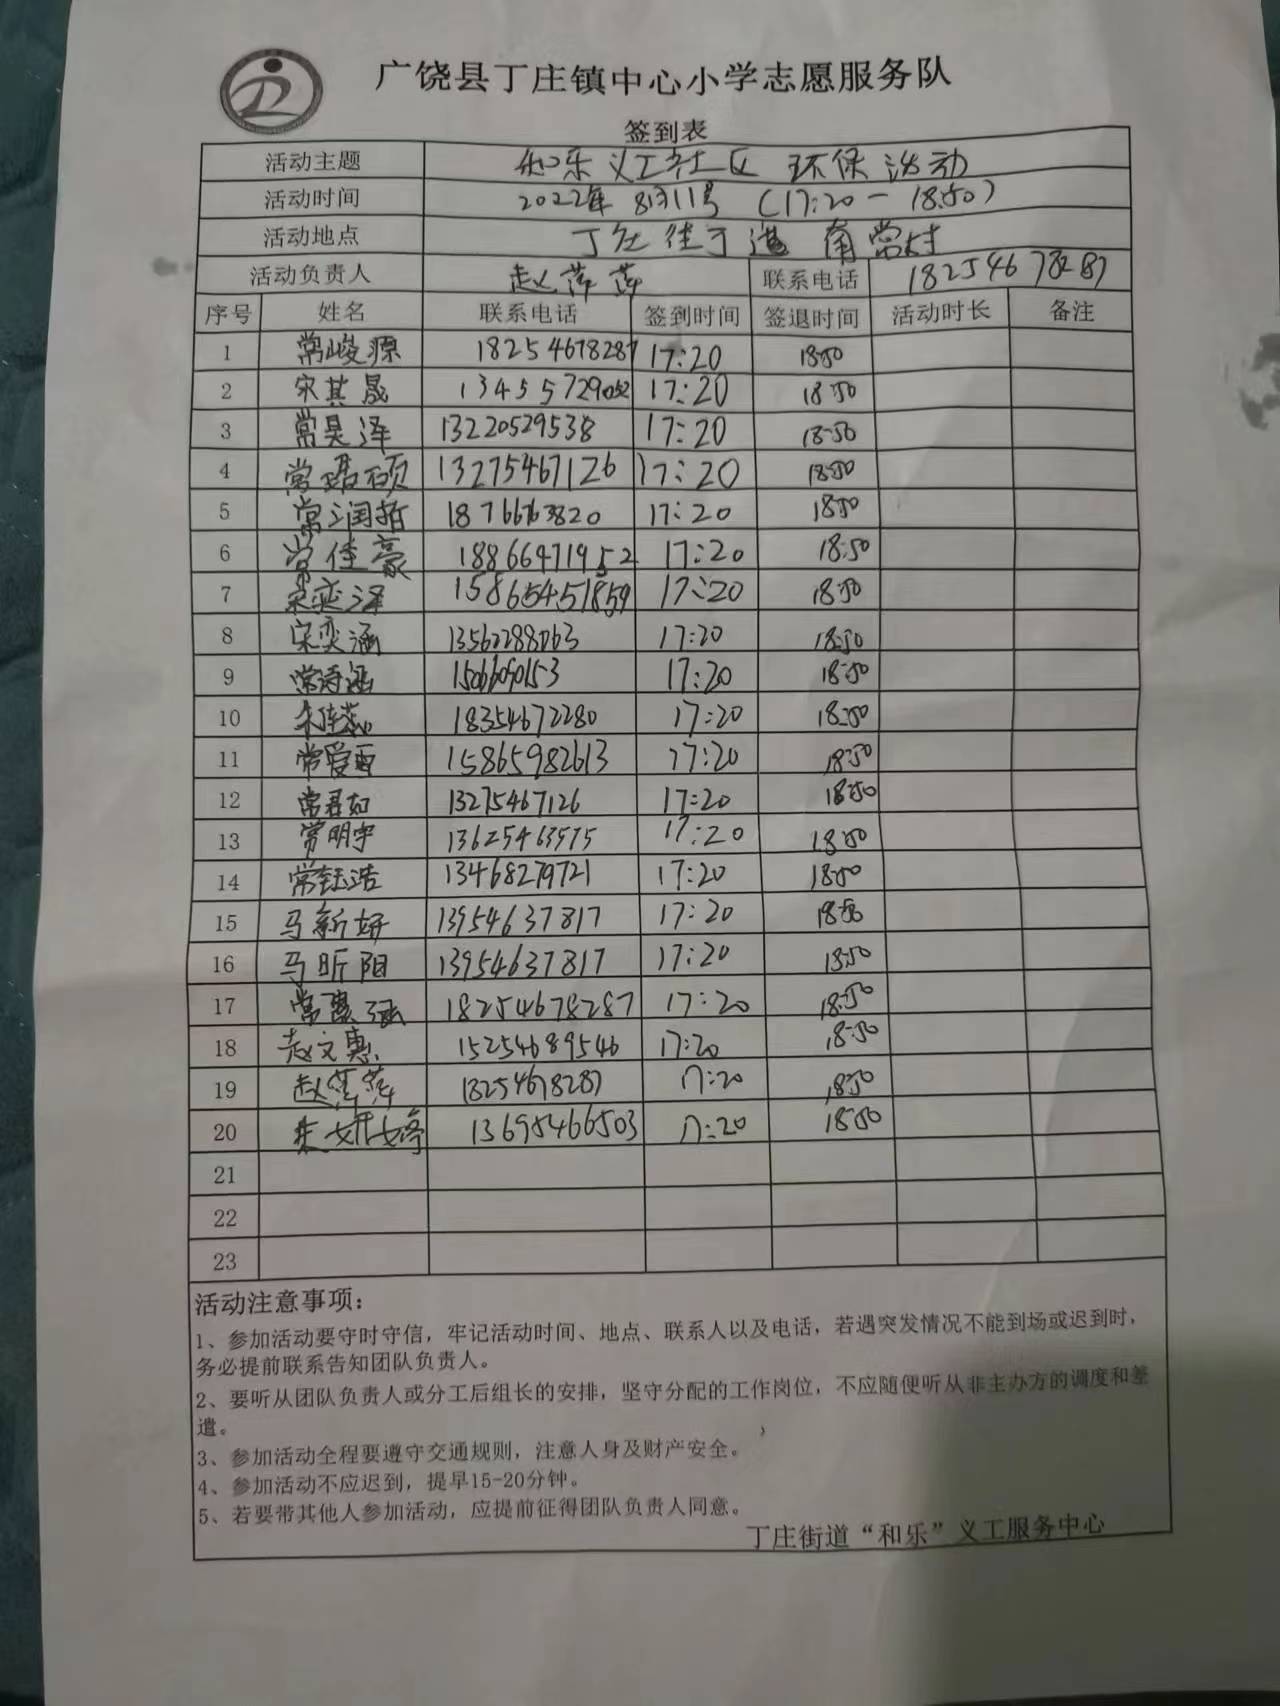 广饶县丁庄镇中心小学志愿服务队
签到表
活动主题 和乐义工社区 环保活动
活动时间 2022年8月11号 (17:20-18:50)
活动地点 南常村
活动负责人 赵萍萍 联系电话 18254678287
序号 姓名 联系电话 签到时间 签退时间 活动时长 备注
1 常峻源 18254678287 17:20 18:50
2 宋其晟 13455729052 17:20 18:50
3 常昊泽 13220529538 17:20 18:50
4 常珺硕 13275467126 17:20 18:50
5 常润哲 18766763820 17:20 18:50
6 常佳豪 18866471952 17:20 18:50
7 宋奕泽 15865451859 17:20 18:50
8 宋奕涵 13562288063 17:20 18:50
9 常诗涵 17:20 18:50
10 18354672280 17:20 18:50
11 常爱西 15865982613 17:20 18:50
12 常君如 13275467126 17:20 18:50
13 常明宇 13625463575 17:20 18:50
14 常钰浩 13468279721 17:20 18:50
15 马新妍 13954637817 17:20 18:50
16 马昕阳 13954637817 17:20 18:50
17 18254678287 17:20 18:50
18 赵文惠 15254689546 17:20 18:50
19 赵萍萍 18254678287 17:20 18:50
20 13695466503 17:20 18:50
21
22
23
活动注意事项：
1、参加活动要守时守信，牢记活动时间、地点、联系人以及电话，若遇突发情况不能到场或迟到时，
务必提前联系告知团队负责人。
2、要听从团队负责人或分工后组长的安排，坚守分配的工作岗位，不应随便听从非主办方的调度和差
遣。
3、参加活动全程要遵守交通规则，注意人身及财产安全。
4、参加活动不应迟到，提早15-20分钟。
5、若要带其他人参加活动，应提前征得团队负责人同意。
丁庄街道“和乐”义工服务中心